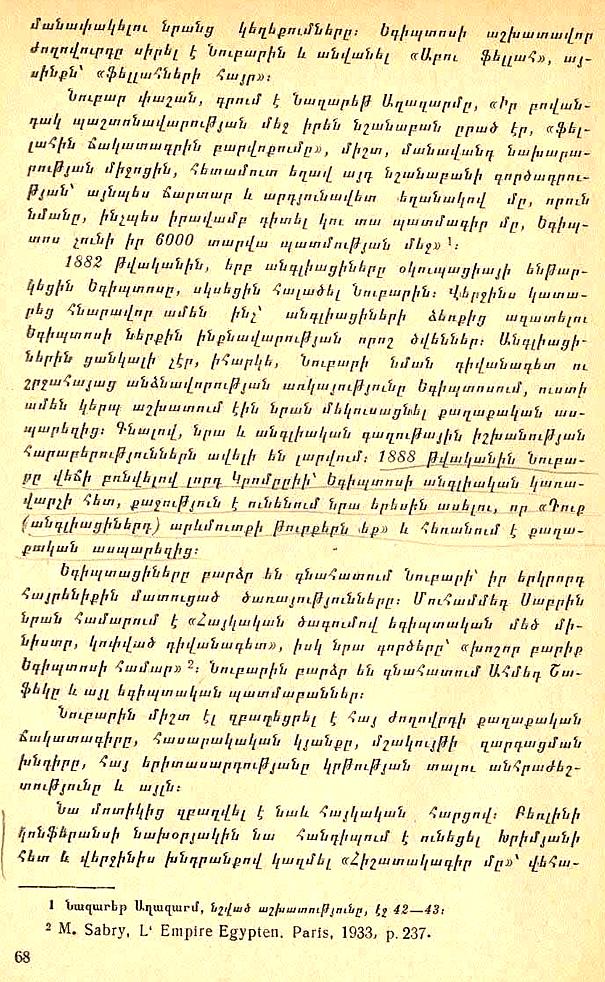 մանափակելու նրանց կեղեքումները։ Եգիպտոսի աշխատավոր
ժողովուրդը սիրել է Նուբարին և անվանել «Աբու ֆելլահ», այ-
սինքն՝ «ֆելլահների հայր»։
Նուբար փաշան, գրում է Նազարեթ Աղազարմը, «Իր բովան-
դակ պաշտոնավարության մեջ իրեն նշանաբան ըրած էր, «ֆել-
լահին ճակատագրին բարվոքումը», միշտ, մանավանդ նախարա-
րության միջոցին, հետամուտ եղավ այդ նշանաբանի գործադրու-
թյան՝ այնպես ճարտար և արդյունավետ եղանակով մը, որուն
նմանը, ինչպես իրավամբ դիտել կու տա պատմագիր մը, Եգիպ-
տոս չունի իր 6000 տարվա պատմության մեջ» ¹։
1882 թվականին, երբ անգլիացիները օկուպացիայի ենթար-
կեցին Եգիպտոսը, սկսեցին հալածել Նուբարին։ Վերջինս կատա-
րեց հնարավոր ամեն ինչ՝ անգլիացիների ձեռքից ազատելու
Եգիպտոսի ներքին ինքնավարության որոշ ծվեններ։ Անգլիացի-
ներին ցանկալի չէր, իհարկե, Նուբարի նման դիվանագետ ու
շրջահայաց անձնավորության առկայությունը Եգիպտոսում, ուստի
ամեն կերպ աշխատում էին նրան մեկուսացնել քաղաքական աս-
պարեզից։ Գնալով, նրա և անգլիական գաղութային իշխանության
հարաբերություններն ավելի են լարվում։ 1888 թվականին Նուբա-
րը վեճի բռնվելով լորդ Կրոմըըիի՝ Եգիպտոսի անգլիական կառա-
վարչի հետ, քաջություն է ունենում նրա երեսին ասելու, որ «Դուք
(անգլիացիներդ) արևմուտքի թուրքերն եք» և հեռանում է քաղա-
քական ասպարեզից։
Եգիպտացիները բարձր են գնահատում Նուբարի՝ իր երկրորդ
հայրենիքին մատուցած ծառայությունները։ Մուհամմեդ Սաբրին
նրան համարում է «Հայկական ծագումով եգիպտական մեծ մի-
նիստր, կոփված դիվանագետ», իսկ նրա գործերը՝ «խոշոր բարիք
Եգիպտոսի համար» ²։ Նուբարին բարձր են գնահատում Ահմեդ Շա-
ֆեկը և այլ եգիպտական պատմաբաններ։
Նուբարին միշտ էլ զբաղեցրել է հայ ժողովրդի քաղաքական
ճակատագիրը, հասարակական կյանքը, մշակույթի զարգացման
խնդիրը, հայ երիտասարդությանը կրթության տալու անհրաժեշ-
տությունը և այլն։
Նա մոտիկից զբաղվել է նաև հայկական հարցով։ Բեռլինի
կոնֆերանսի նախօրյակին նա հանդիպում է ունեցել Խրիմյանի
հետ և վերջինիս խնդրանքով կազմել «Հիշատակագիր մը»՝ վեհա-
1 Նազարեթ Աղազարմ, նշված աշխատությունը, էջ 42—43։
² M. Sabry, L' Empire Egypten. Paris, 1933, p. 237.
68